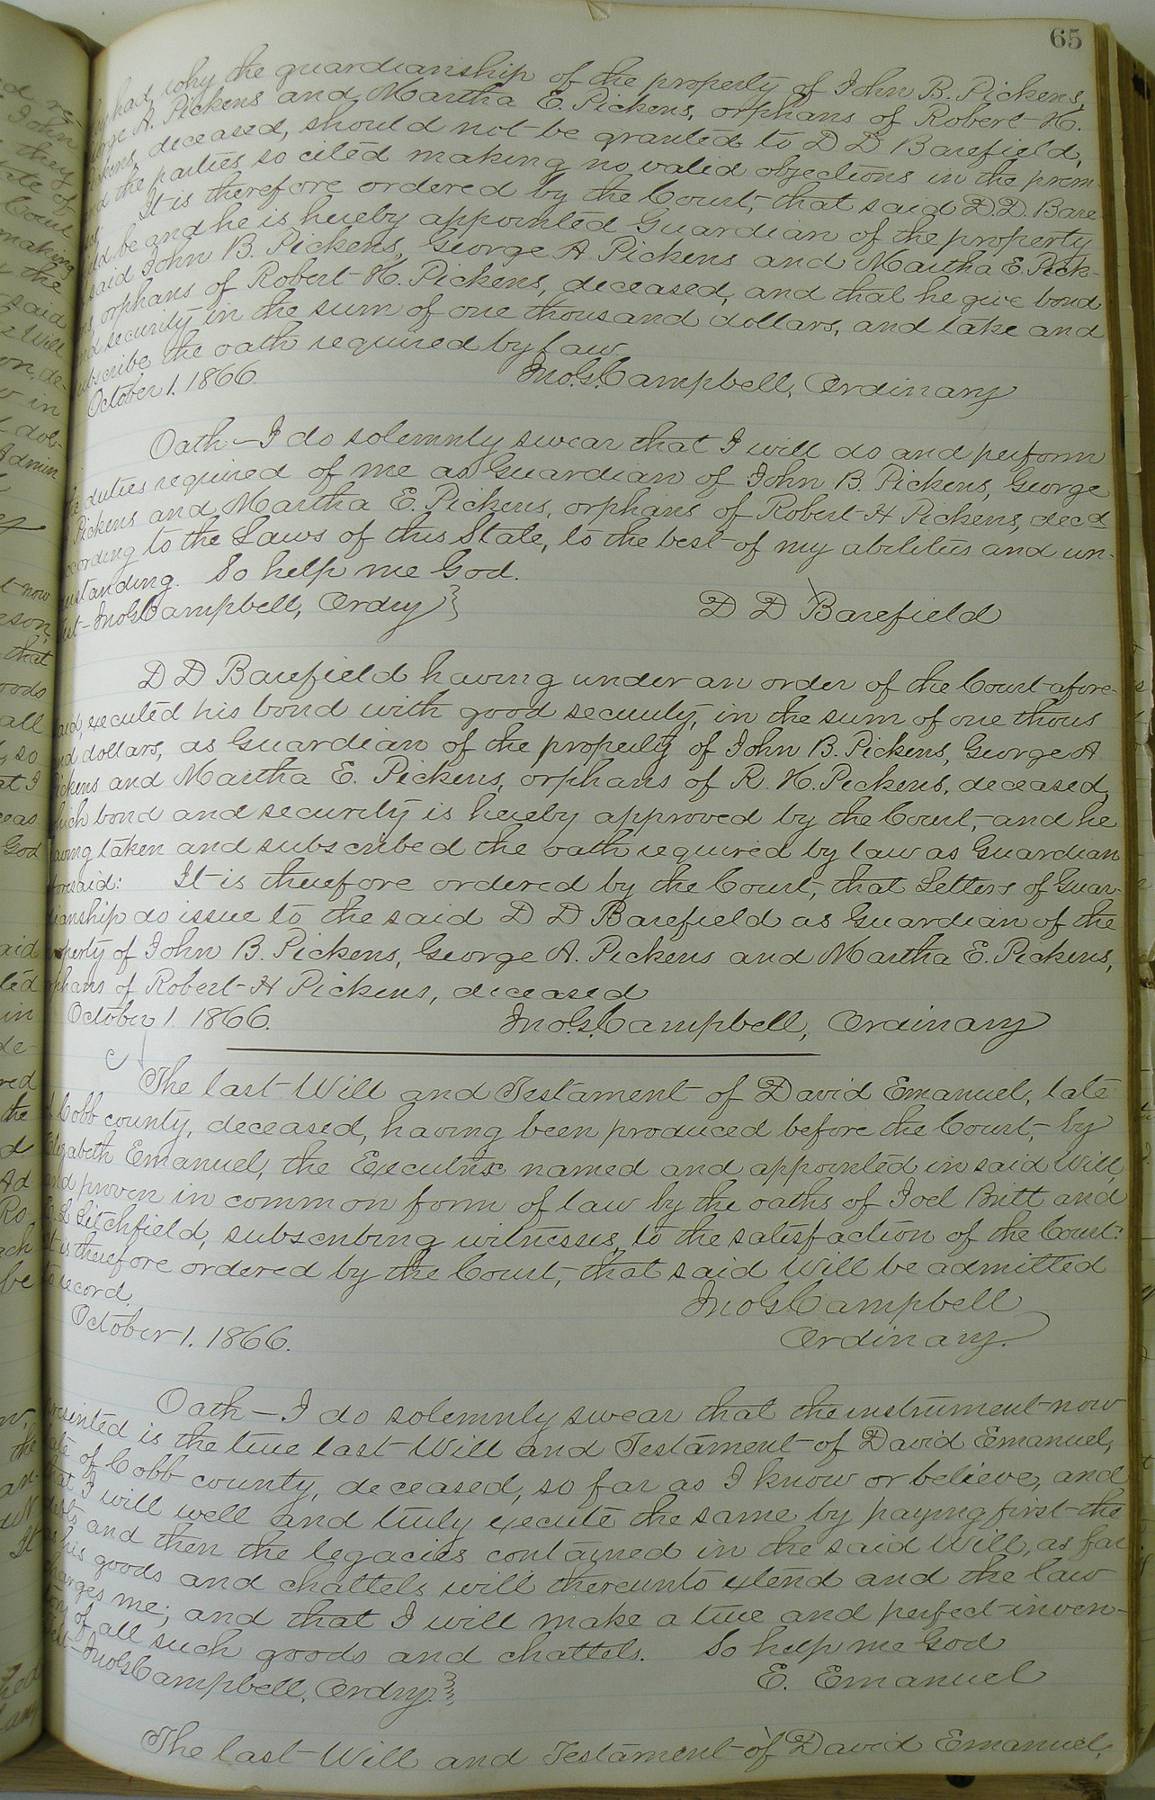 65
they had, why the guardianship of the property of John B. Pickens,
George A. Pickens and Martha E. Pickens, orphans of Robert H.
Pickens, deceased, should not be granted to D D Barefield,
and the parties so cited making no valid objections in the prem-
ises, It is therefore ordered by the Court, that said D. D. Bare
field be and he is hereby appointed Guardian of the property
of said John B. Pickens, George A Pickens and Martha E. Pick-
ens, orphans of Robert H. Pickens, deceased, and that he give bond
and security in the sum of one thousand dollars, and take and
subscribe the oath required by law.
October 1. 1866. Jno. G. Campbell, Ordinary
Oath – I do solemnly swear that I will do and perform
the duties required of me as Guardian of John B. Pickens, George
A Pickens and Martha E. Pickens, orphans of Robert H Pickens, decd
according to the Laws of this State, to the best of my abilities and un-
derstanding. So help me God.
Test– Jno G Campbell, Ordry } D D Barefield
D D Barefield having under an order of the Court afore-
said, executed his bond with good security, in the sum of one thous
and dollars, as Guardian of the property of John B. Pickens, George A
Pickens and Martha E. Pickens, orphans of R. H. Pickens, deceased,
which bond and security is hereby approved by the Court,– and he
having taken and subscribed the oath required by law as Guardian
aforesaid: It is therefore ordered by the Court, that Letters of Guar-
dianship do issue to the said D D Barefield as Guardian of the
property of John B. Pickens, George A. Pickens and Martha E. Pickens,
orphans of Robert H Pickens, deceased
October 1. 1866. Jno. G. Campbell, Ordinary
The last Will and Testament of David Emanuel, late
of Cobb county, deceased, having been produced before the Court,– by
Elizabeth Emanuel, the Executrix named and appointed in said Will,
and proven in common form of law by the oaths of Joel Britt and
L Litchfield, subscribing witnesses, to the satisfaction of the Court:
It is therefore ordered by the Court, that said Will be admitted
to record.
October 1. 1866. Jno G Campbell
Ordinary.
Oath – I do solemnly swear that the instrument now
presented is the true last Will and Testament of David Emanuel,
late of Cobb county, deceased, so far as I know or believe, and
that I will well and truly execute the same by paying first the
debts and then the legacies contained in the said Will, as far
as his goods and chattels will thereunto extend and the law
charges me; and that I will make a true and perfect inven-
tory of all such goods and chattels. So help me God
Test– Jno G Campbell, Ordry } E. Emanuel
The last Will and Testament of David Emanuel,